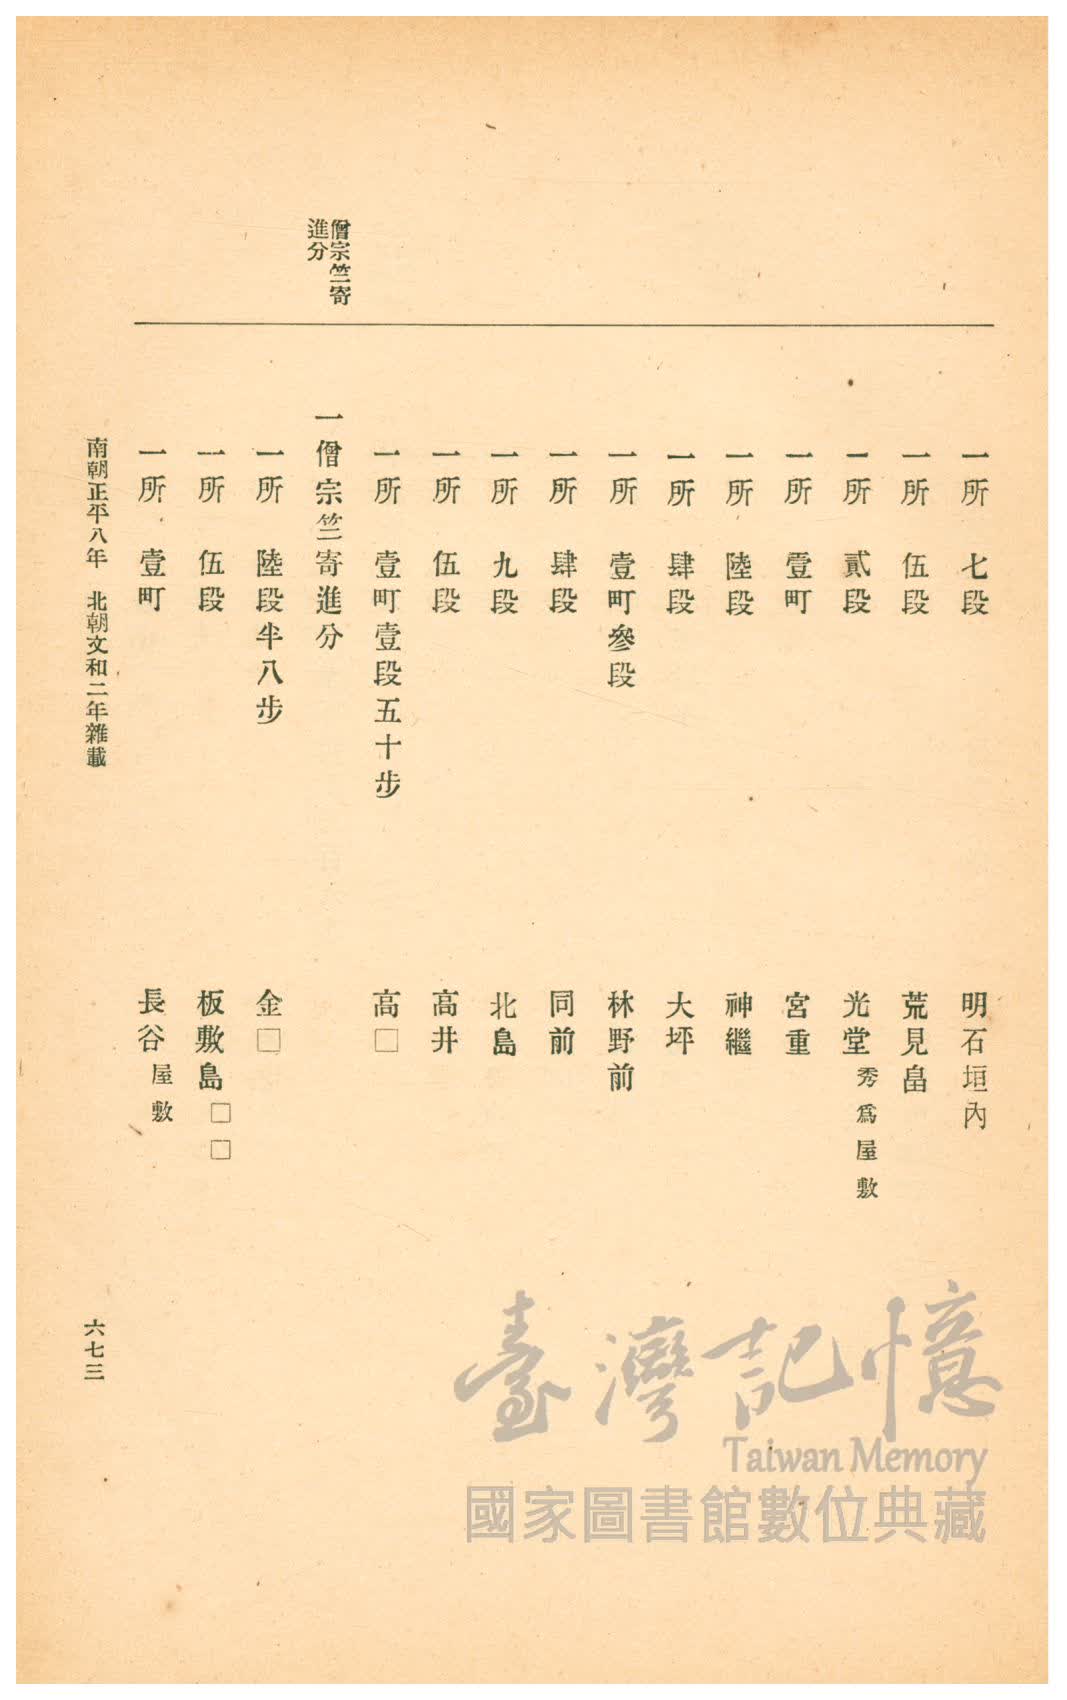 僧宗竺寄
進分
一所　七段　明石垣內
一所　伍段　荒見畠
一所　貳段　光堂秀爲屋敷
一所　壹町　宮重
一所　陸段　神繼
一所　肆段　大坪
一所　壹町參段　林野前
一所　肆段　同前
一所　九段　北島
一所　伍段　高井
一所　壹町壹段五十步　高□
一僧宗竺寄進分
一所　陸段半八步　金□
一所　伍段　板敷島□□
一所　壹町　長谷屋敷
南朝正平八年　北朝文和二年雜載
六七三
臺灣記憶
Taiwan Memory
國家圖書館數位典藏